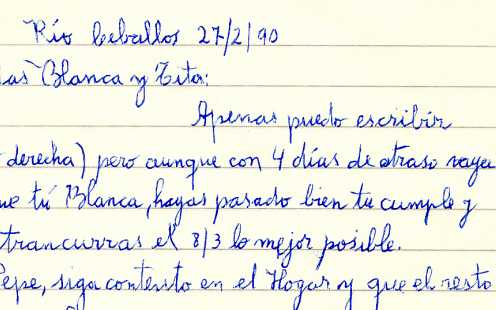 Río Ceballos 27/2/90
das Blanca y Tita:
Apenas puedo escribir
derecha) pero aunque con 4 días de atraso vaya
ue tú Blanca, hayas pasado bien tu cumple y
trancurras el 8/3 lo mejor posible.
Pepe, siga contento en el Hogar y que el resto